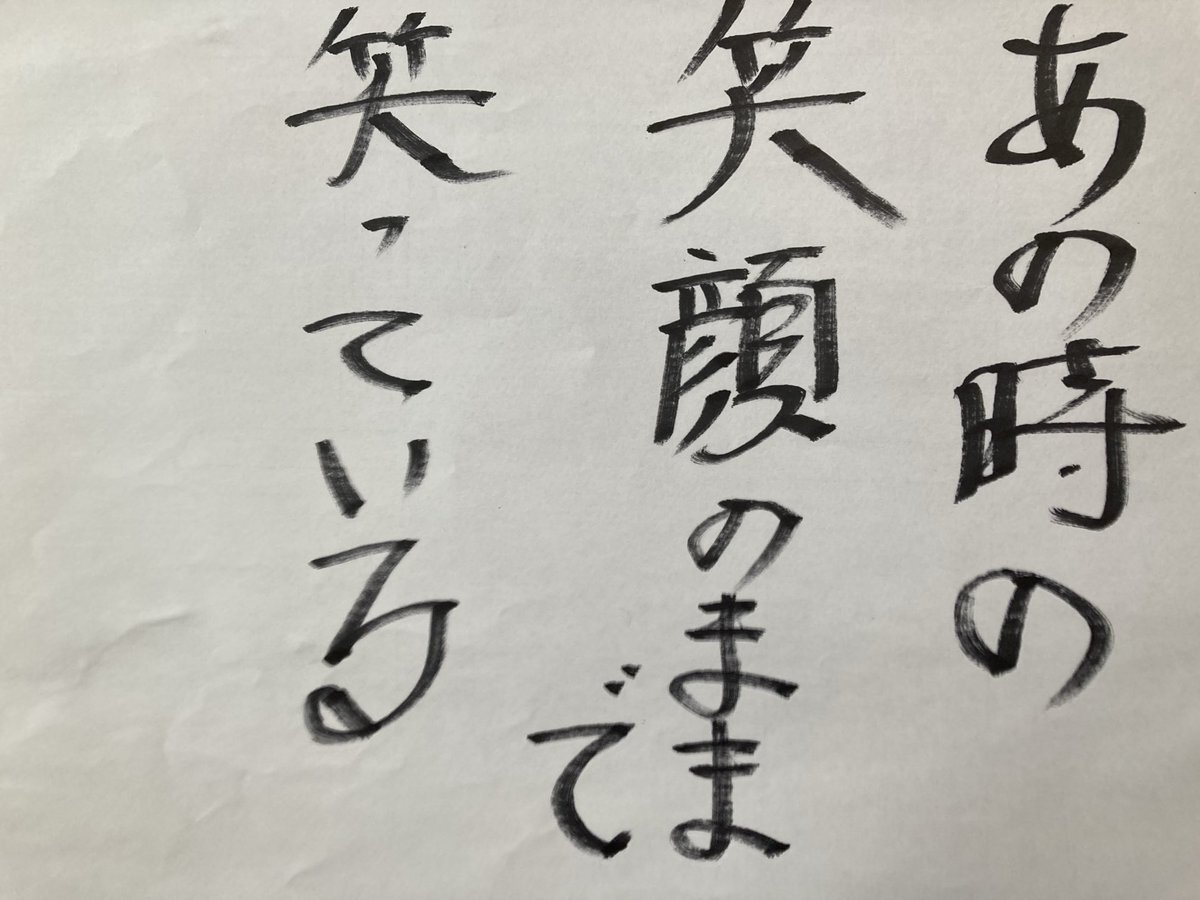 あの時の
笑顔のまま
で
笑っている